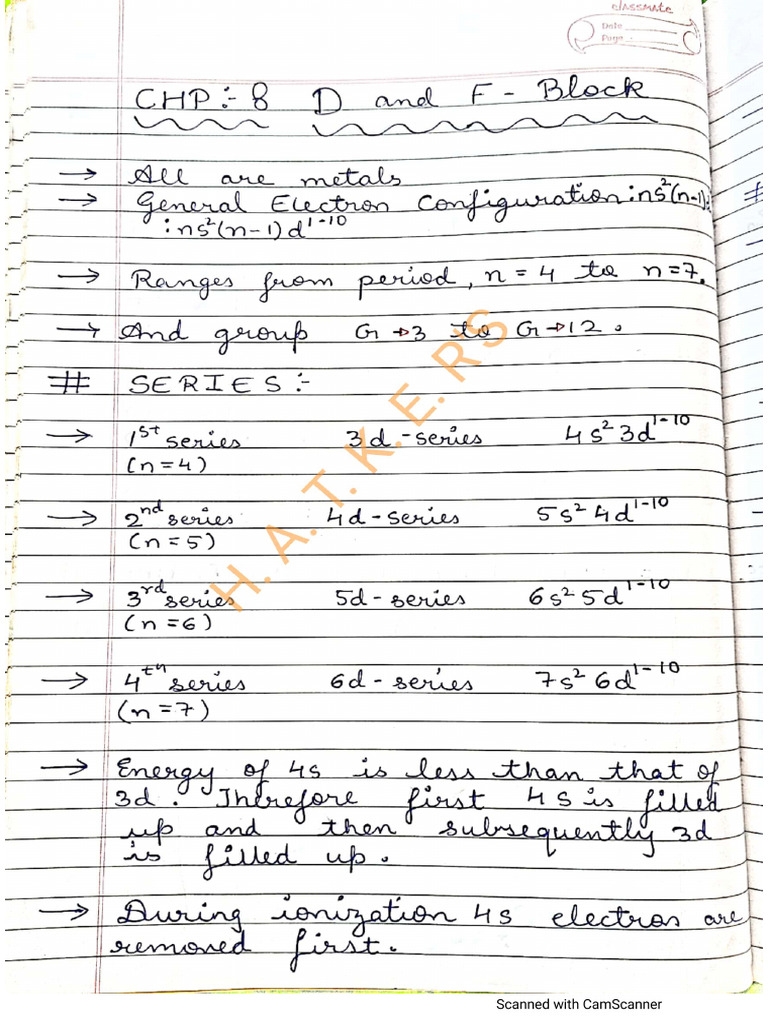 classmate
Date
Page
CHP:- 8 D and F - Block
→ All are metals
→ General Electron Configuration : ns²(n-1):
: ns²(n-1) d¹⁻¹⁰
→ Ranges from period, n = 4 to n = 7.
→ And group G → 3 to G → 12.
# SERIES :-
→ 1st series 3d - series 4s² 3d¹⁻¹⁰
(n = 4)
→ 2nd series 4d - series 5s² 4d¹⁻¹⁰
(n = 5)
→ 3rd series 5d - series 6s² 5d¹⁻¹⁰
(n = 6)
→ 4th series 6d - series 7s² 6d¹⁻¹⁰
(n = 7)
→ Energy of 4s is less than that of
3d. Therefore first 4s is filled
up and then subsequently 3d
is filled up.
→ During ionization 4s electrons are
removed first.
H.A.T.K.E.R'S
Scanned with CamScanner